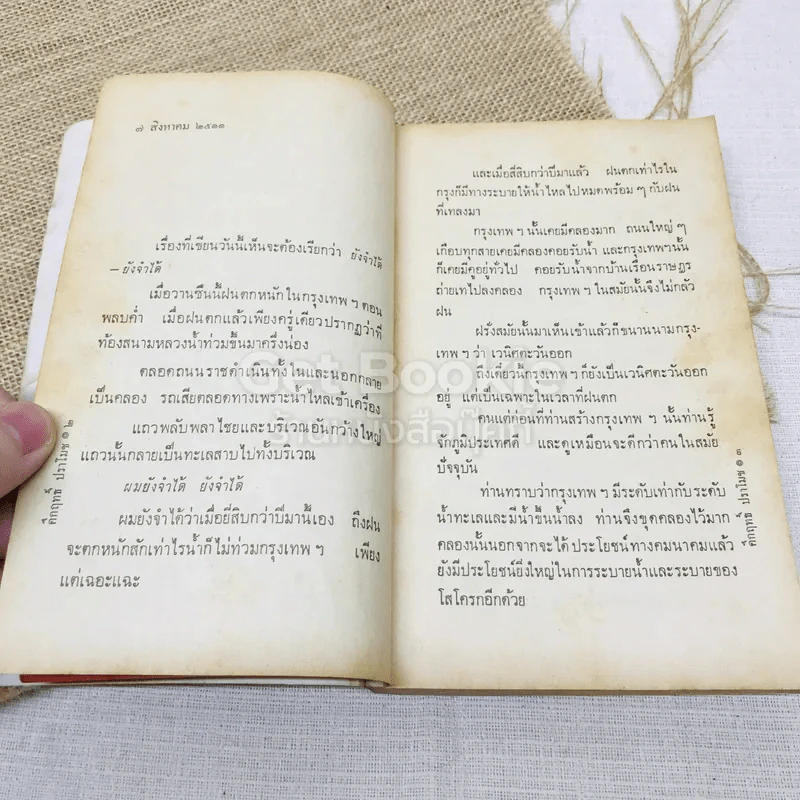 ๗ สิงหาคม ๒๕๑๑
เรื่องที่เขียนวันนี้เห็นจะต้องเรียกว่า ยังจำได้
—ยังจำได้
เมื่อวานซืนนี้ฝนตกหนักในกรุงเทพ ฯ ตอน
พลบค่ำ เมื่อฝนตกแล้วเพียงครู่เดียวปรากฏว่าที่
ท้องสนามหลวงน้ำท่วมขึ้นมาครึ่งน่อง
ตลอดถนนราชดำเนินทั้งในและนอกกลาย
เป็นคลอง รถเสียตลอดทางเพราะน้ำไหลเข้าเครื่อง
แถวพลับพลาไชยและบริเวณอันกว้างใหญ่
แถวนั้นกลายเป็นทะเลสาบไปทั้งบริเวณ
ผมยังจำได้ ยังจำได้
ผมยังจำได้ว่าเมื่อยี่สิบกว่าปีมานี้เอง ถึงฝน
จะตกหนักสักเท่าไรน้ำก็ไม่ท่วมกรุงเทพ ฯ เพียง
แต่เฉอะแฉะ
คึกฤทธิ์ ปราโมช ๑๒
และเมื่อสี่สิบกว่าปีมาแล้ว ฝนตกเท่าไรใน
กรุงก็มีทางระบายให้น้ำไหลไปหมดพร้อม ๆ กับฝน
ที่เทลงมา
กรุงเทพ ฯ นั้นเคยมีคลองมาก ถนนใหญ่ ๆ
เกือบทุกสายเคยมีคลองคอยรับน้ำ และกรุงเทพฯนั้น
ก็เคยมีคูอยู่ทั่วไป คอยรับน้ำจากบ้านเรือนราษฎร
ถ่ายเทไปลงคลอง กรุงเทพ ฯ ในสมัยนั้นจึงไม่กลัว
ฝน
ฝรั่งสมัยนั้นมาเห็นเข้าแล้วก็ขนานนามกรุง-
เทพ ฯ ว่า เวนิศตะวันออก
ถึงเดี๋ยวนี้กรุงเทพ ฯ ก็ยังเป็นเวนิศตะวันออก
อยู่ แต่เป็นเฉพาะในเวลาที่ฝนตก
คนแต่ก่อนที่ท่านสร้างกรุงเทพ ฯ นั้นท่านรู้
จักภูมิประเทศดี และดูเหมือนจะดีกว่าคนในสมัย
ปัจจุบัน
ท่านทราบว่ากรุงเทพ ฯ มีระดับเท่ากับระดับ
น้ำทะเลและมีน้ำขึ้นน้ำลง ท่านจึงขุดคลองไว้มาก
คลองนั้นนอกจากจะได้ประโยชน์ทางคมนาคมแล้ว
ยังมีประโยชน์ยิ่งใหญ่ในการระบายน้ำและระบายของ
โสโครกอีกด้วย
คึกฤทธิ์ ปราโมช ๑๓
Get Bookie
ร้านหนังสือบุ๊คกี้